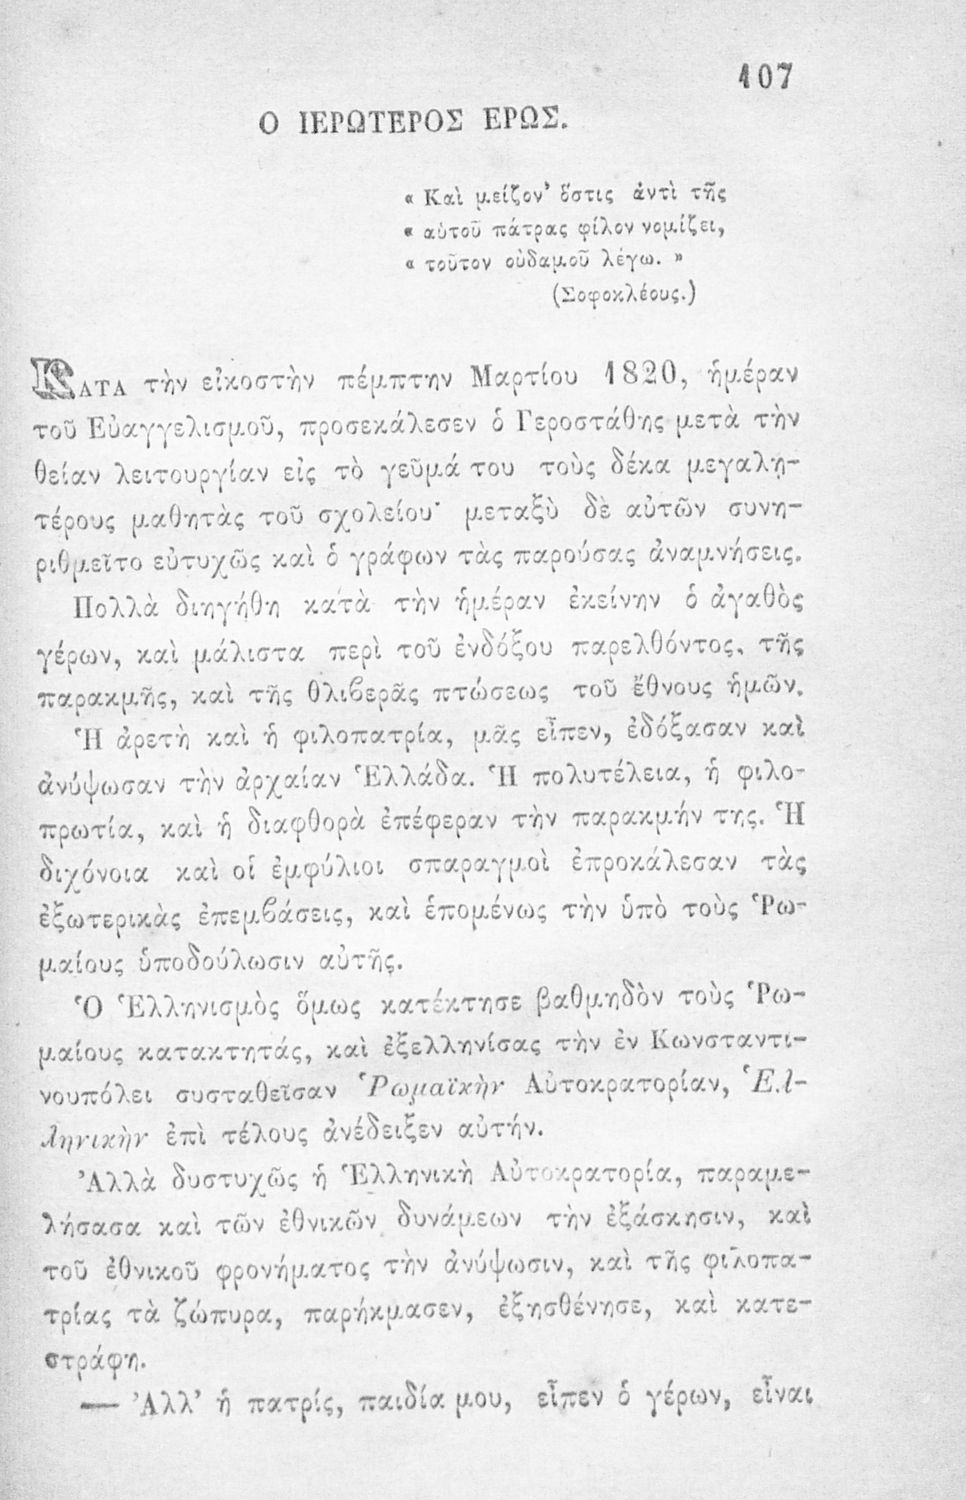 107
Ο ΙΕΡΩΤΕΡΟΣ ΕΡΩΣ.
« Καὶ μείζον’ ὅστις ἀντὶ τῆς
« αὑτοῦ πάτρας φίλον νομίζει,
« τοῦτον οὐδαμοῦ λέγω. »
(Σοφοκλέους.)
ΚΑΤΑ τὴν εἰκοστὴν πέμπτην Μαρτίου 1820, ἡμέραν
τοῦ Εὐαγγελισμοῦ, προσεκάλεσεν ὁ Γεροστάθης μετὰ τὴν
θείαν λειτουργίαν εἰς τὸ γεῦμά του τοὺς δέκα μεγαλη-
τέρους μαθητὰς τοῦ σχολείου· μεταξὺ δὲ αὐτῶν συνη-
ριθμεῖτο εὐτυχῶς καὶ ὁ γράφων τὰς παρούσας ἀναμνήσεις.
Πολλὰ διηγήθη κατὰ τὴν ἡμέραν ἐκείνην ὁ ἀγαθὸς
γέρων, καὶ μάλιστα περὶ τοῦ ἐνδόξου παρελθόντος, τῆς
παρακμῆς, καὶ τῆς θλιβερᾶς πτώσεως τοῦ ἔθνους ἡμῶν.
Ἡ ἀρετὴ καὶ ἡ φιλοπατρία, μᾶς εἶπεν, ἐδόξασαν καὶ
ἀνύψωσαν τὴν ἀρχαίαν Ἑλλάδα. Ἡ πολυτέλεια, ἡ φιλο-
πρωτία, καὶ ἡ διαφθορὰ ἐπέφεραν τὴν παρακμήν της. Ἡ
διχόνοια καὶ οἱ ἐμφύλιοι σπαραγμοὶ ἐπροκάλεσαν τὰς
ἐξωτερικὰς ἐπεμβάσεις, καὶ ἑπομένως τὴν ὑπὸ τοὺς Ῥω-
μαίους ὑποδούλωσιν αὐτῆς.
Ὁ Ἑλληνισμὸς ὅμως κατέκτησε βαθμηδὸν τοὺς Ῥω-
μαίους κατακτητάς, καὶ ἐξελληνίσας τὴν ἐν Κωνσταντι-
νουπόλει συσταθεῖσαν Ῥωμαϊκὴν Αὐτοκρατορίαν, Ἑλ-
ληνικὴν ἐπὶ τέλους ἀνέδειξεν αὐτήν.
Ἀλλὰ δυστυχῶς ἡ Ἑλληνικὴ Αὐτοκρατορία, παραμε-
λήσασα καὶ τῶν ἐθνικῶν δυνάμεων τὴν ἐξάσκησιν, καὶ
τοῦ ἐθνικοῦ φρονήματος τὴν ἀνύψωσιν, καὶ τῆς φιλοπα-
τρίας τὰ ζώπυρα, παρήκμασεν, ἐξησθένησε, καὶ κατε-
στράφη.
— Ἀλλ’ ἡ πατρίς, παιδία μου, εἶπεν ὁ γέρων, εἶναι